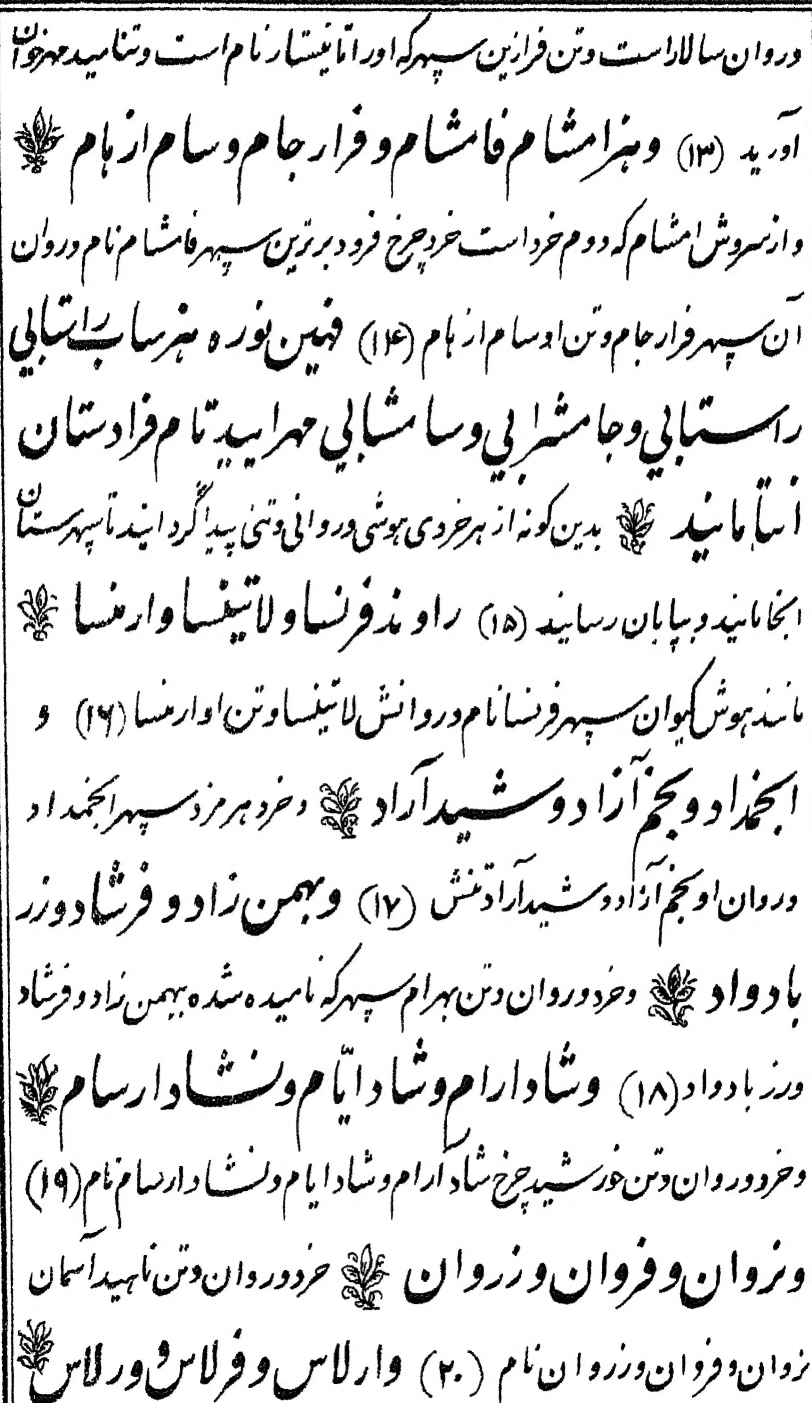 و روان سالار است و تن فرازین سپهر که او را تانیستار نام است و تناسید مهرخوان
آورید (۱۳) و هنز امشام فامشام و فرارجام و سام ازهام
و از سروش امشام که دوم خرد است خرد چرخ فرود برترین سپهر فامشام نام و روان
آن سپهر فرارجام و تن او سام ازهام (۱۴) فهین نوره هنز ساب راستابی
راستابی و جامشرابی و سامشابی مهرایید تام فرادستان
انتامانید بدین گونه از هر خردی هوشی و روانی و تنی پیدا گردانید تا سپهرستان
انجامانید و بپایان رسانید (۱۵) راوند فرنسا و لاتینسا وارمنسا
مانند هوش کیوان سپهر فرنسا نام و روانش لاتینسا و تن او ارمنسا (۱۶) و
انجمداد و نجم آزاد و شیدآراد و خرد هرمزد سپهر انجمداد
و روان او نجم آزاد و شیدآراد تنش (۱۷) و بهمن زاد و فرشاد و زر
بادواد و خرد و روان و تن بهرام سپهر که نامیده شده بهمن زاد و فرشاد
ورز بادواد (۱۸) و شادارام و شادایّام و نشادارسام
و خرد و روان و تن خورشید چرخ شاد آرام و شادایام و نشادارسام نام (۱۹)
ونروان و فروان و زروان خرد و روان و تن ناهید آسمان
نروان و فروان و زروان نام (۲۰) وارلاس و فرلاس و ورلاس